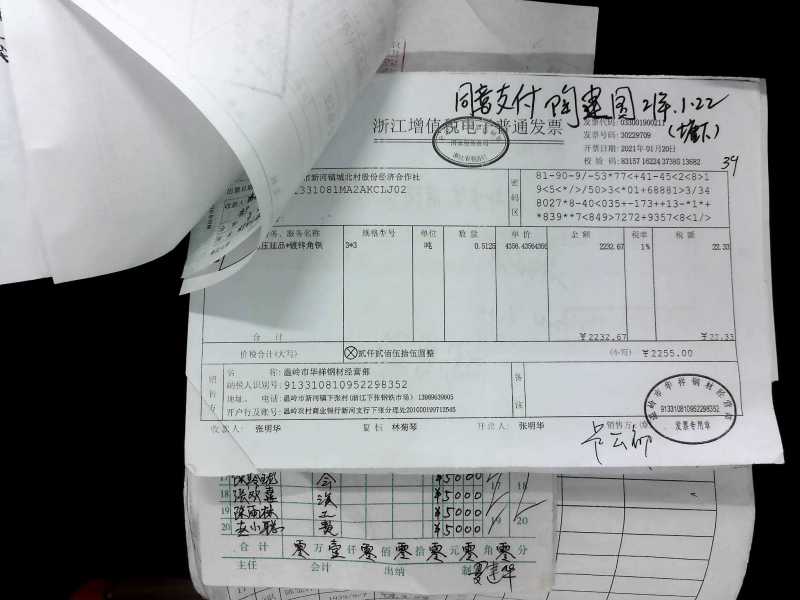 同意支付 陶建国 21年.1.22
浙江增值税电子普通发票
发票代码: 033001900211
发票号码: 30229709
开票日期: 2021年01月20日
校 验 码: 83157 16224 37383 13682
39
市新河镇城北村股份经济合作社
1331081MA2AKCLJ02
密码区
81-90-9/-53*77<+41-45<2<8>1
9<5<*/>/50>3<*01+68881>3/34
8027*8-40<035+-173++13-*1*+
*839**7<849>7272+9357<8<1/>
务、服务名称 规格型号 单位 数量 单价 金额 税率 税额
压延品*镀锌角铁 3*3 吨 0.5125 2232.67 1% 22.33
合 计 ￥2232.67 ￥22.33
价税合计(大写) 贰仟贰佰伍拾伍圆整 (小写) ￥2255.00
销售方
名 称: 温岭市华祥钢材经营部
纳税人识别号: 913310810952298352
地址、电话: 温岭市新河镇下张村(浙江下张钢铁市场) 13989639605
开户行及账号: 温岭农村商业银行新河支行下张分理处201000199712545
备注
收款人: 张明华 复核: 林菊琴 开票人: 张明华 销售方:(章)
温岭市华祥钢材经营部
913310810952298352
发票专用章
17 ¥5000 17 18
18 ¥5000
19 ¥5000 19 20
20 赵小聪 ¥5000
合计 零万壹仟零佰零拾零元零角零分
主任 会计 出纳 制